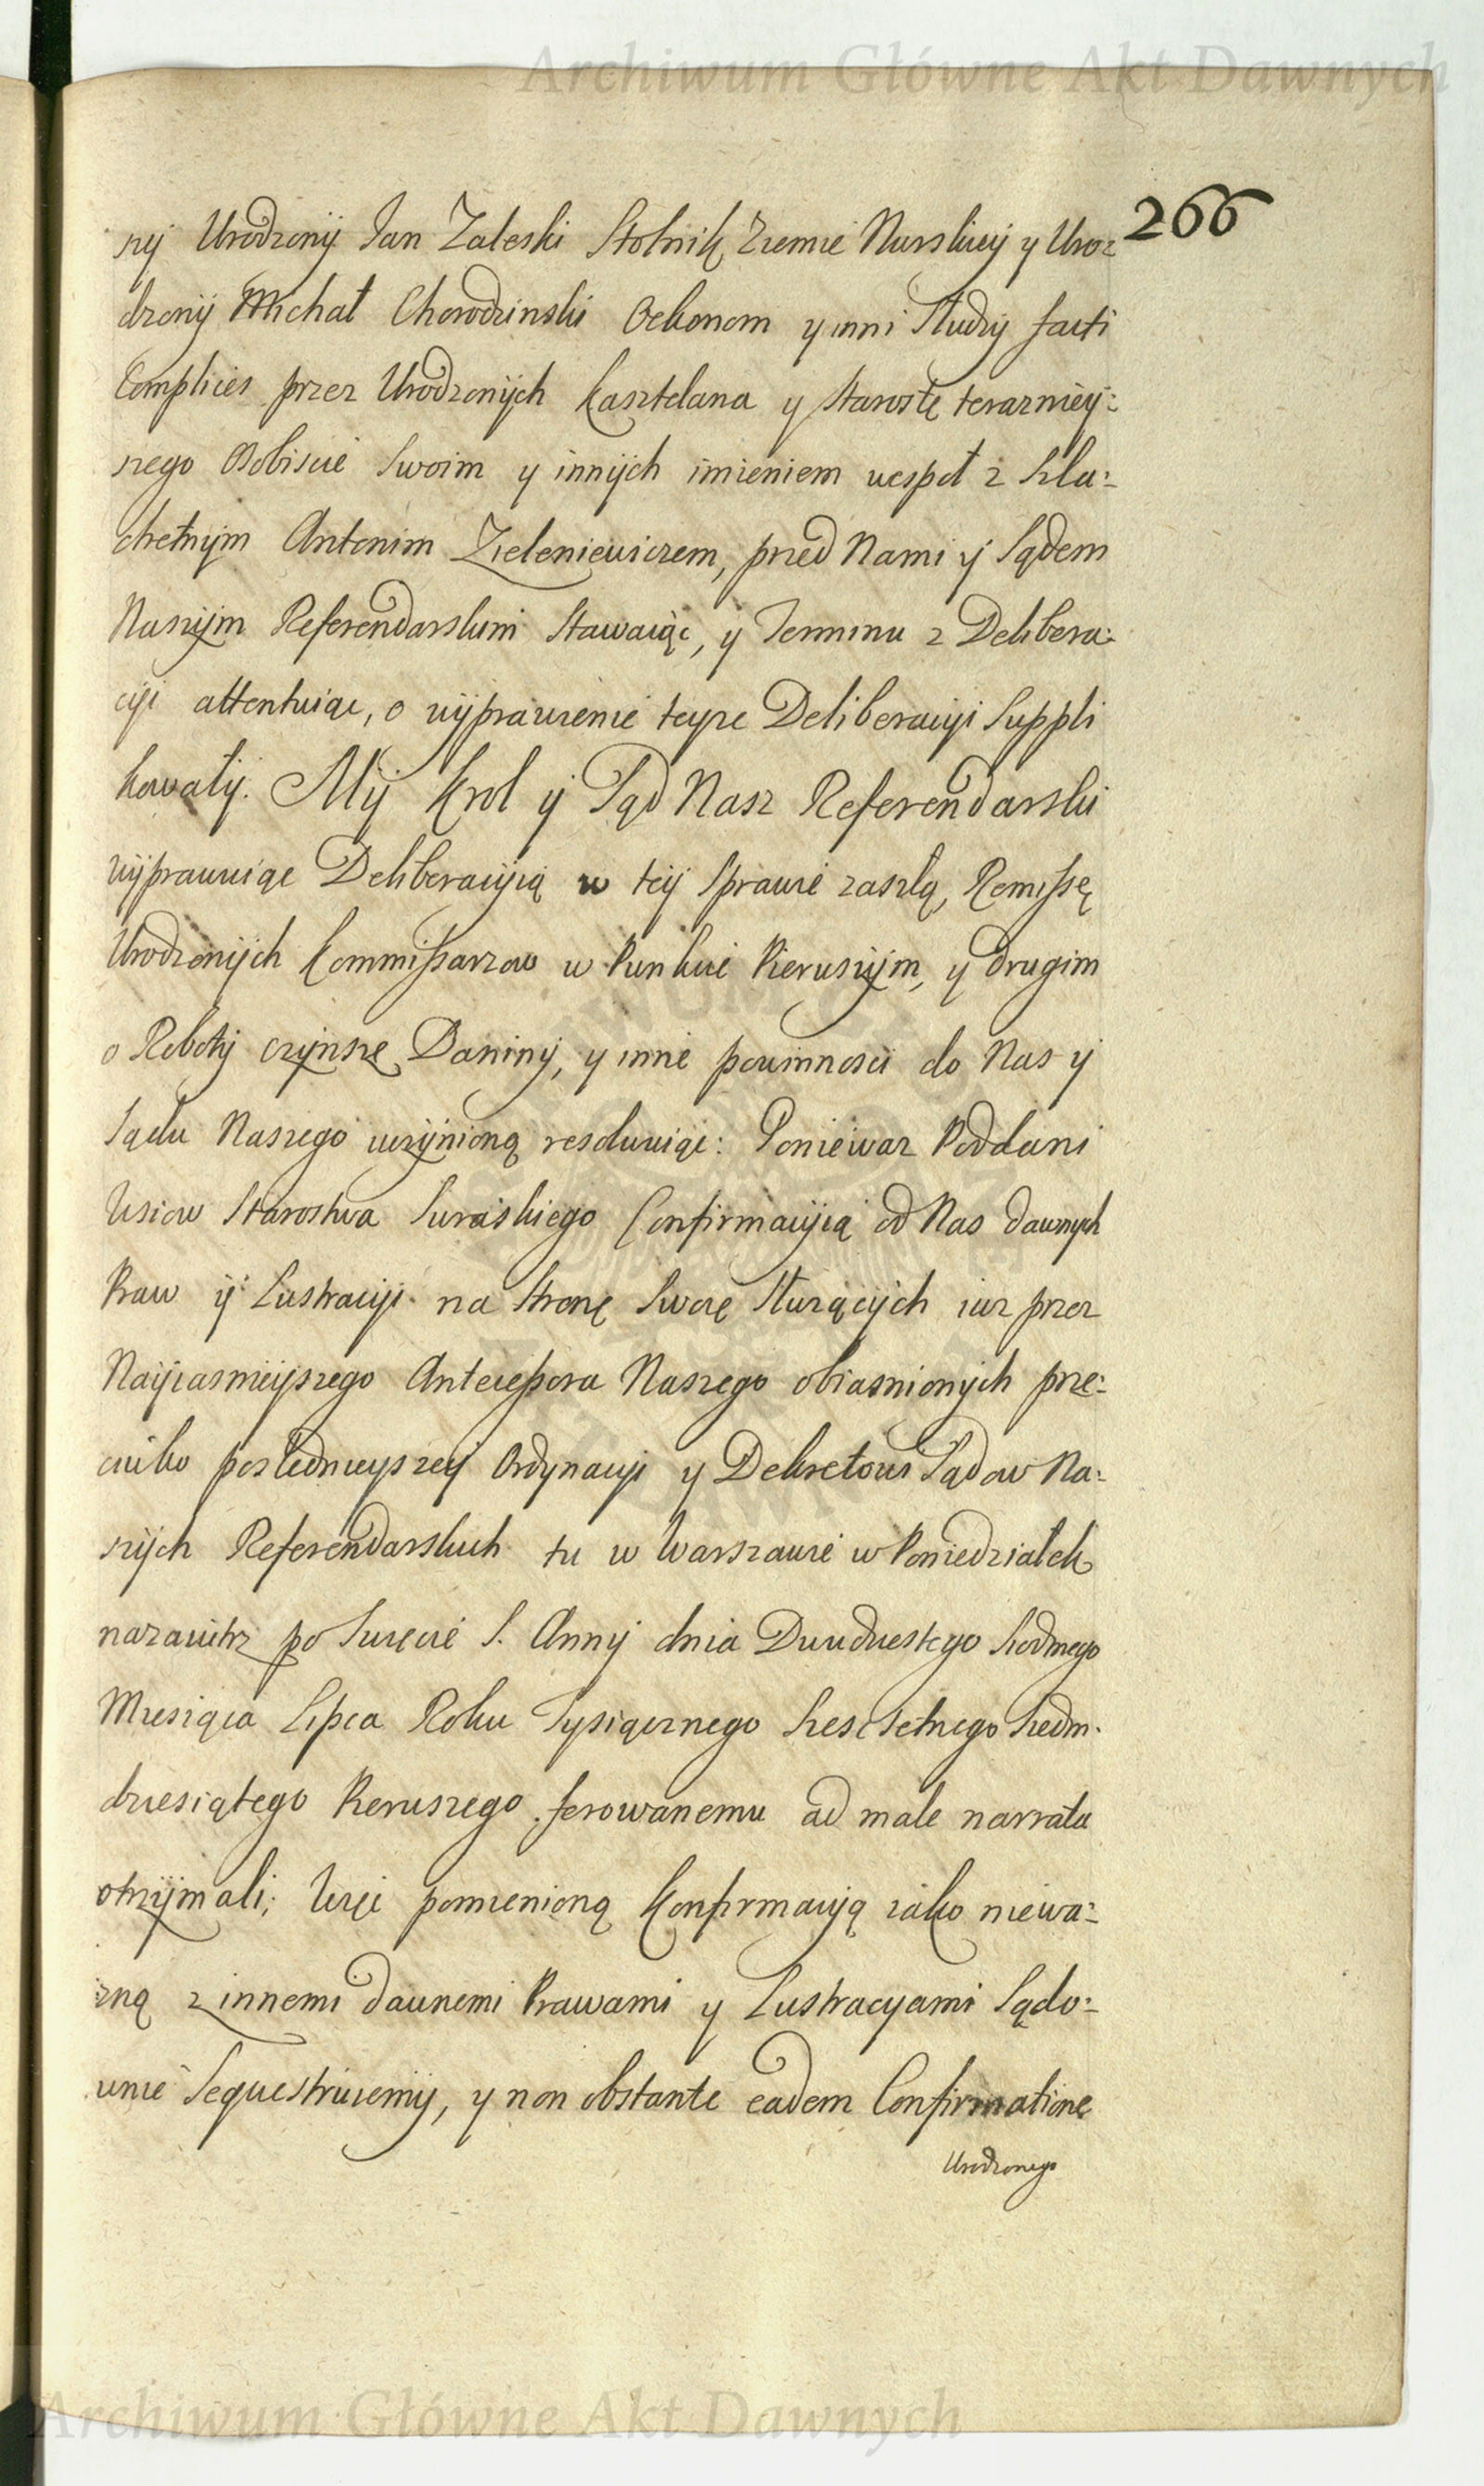 Archiwum Główne Akt Dawnych
266
szy Urodzony Jan Zaleski Stolnik Ziemie Nurskiey y Uro=
dzony Michał Chorodzinski Oekonom y inni Słudzy facti
Complices przez Urodzonych Kasztelana y Starostę terazniey=
szego Osobiscie Swoim y innych imieniem wespoł z Szla=
chetnym Antonim Zieleniewiczem, przed Nami y Sądem
Naszym Referendarskim Stawaiąc, y Terminu z Delibera=
cyi attentuiąc, o wyprawienie teyze Deliberacyi Suppli
kowały. My Krol y Sąd Nasz Referendarski
wyprawuiąc Deliberacyią w tey Sprawie zaszłą, Remissę
Urodzonych Kommissarzow w Punkcie Pierwszym, y drugim
o Roboty czynsze Daniny, y inne powinnosci do Nas y
Sądu Naszego uczynioną resolwuiąc: Poniewaz Poddani
Wsiow Starostwa Suraskiego Confirmacyią od Nas dawnych
Praw y Lustracyi na Stronę Swoię Słuzących iuz przez
Nayiasnieyszego Antecessora Naszego obiasnionych prze=
ciwko poslednieyszey Ordynacyi y Dekretowi Sądow Na=
szych Referendarskich tu w Warszawie w Poniedziałek
nazaiutrz po Swięcie S. Anny dnia Dwudziestego Siodmego
Miesiąca Lipca Roku Tysiącznego Szescsetnego Siedm.
dziesiątego Pierwszego ferowanemu ad male narrata
otrzymali; Więc pomienioną Konfirmacyią iako niewa=
zną z innemi dawnemi Prawami y Lustracyami Sądo=
wnie Sequestruiemy, y non obstante eadem Confirmatione
Urodzonego
Archiwum Główne Akt Dawnych